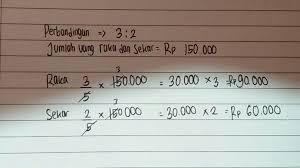 Perbandingan => 3:2
Jumlah uang raka dan Sekar = Rp 150.000
Raka 3/5 x 150.000 = 30.000 x 3 = Rp 90.000
Sekar 2/5 x 150.000 = 30.000 x 2 = Rp 60.000